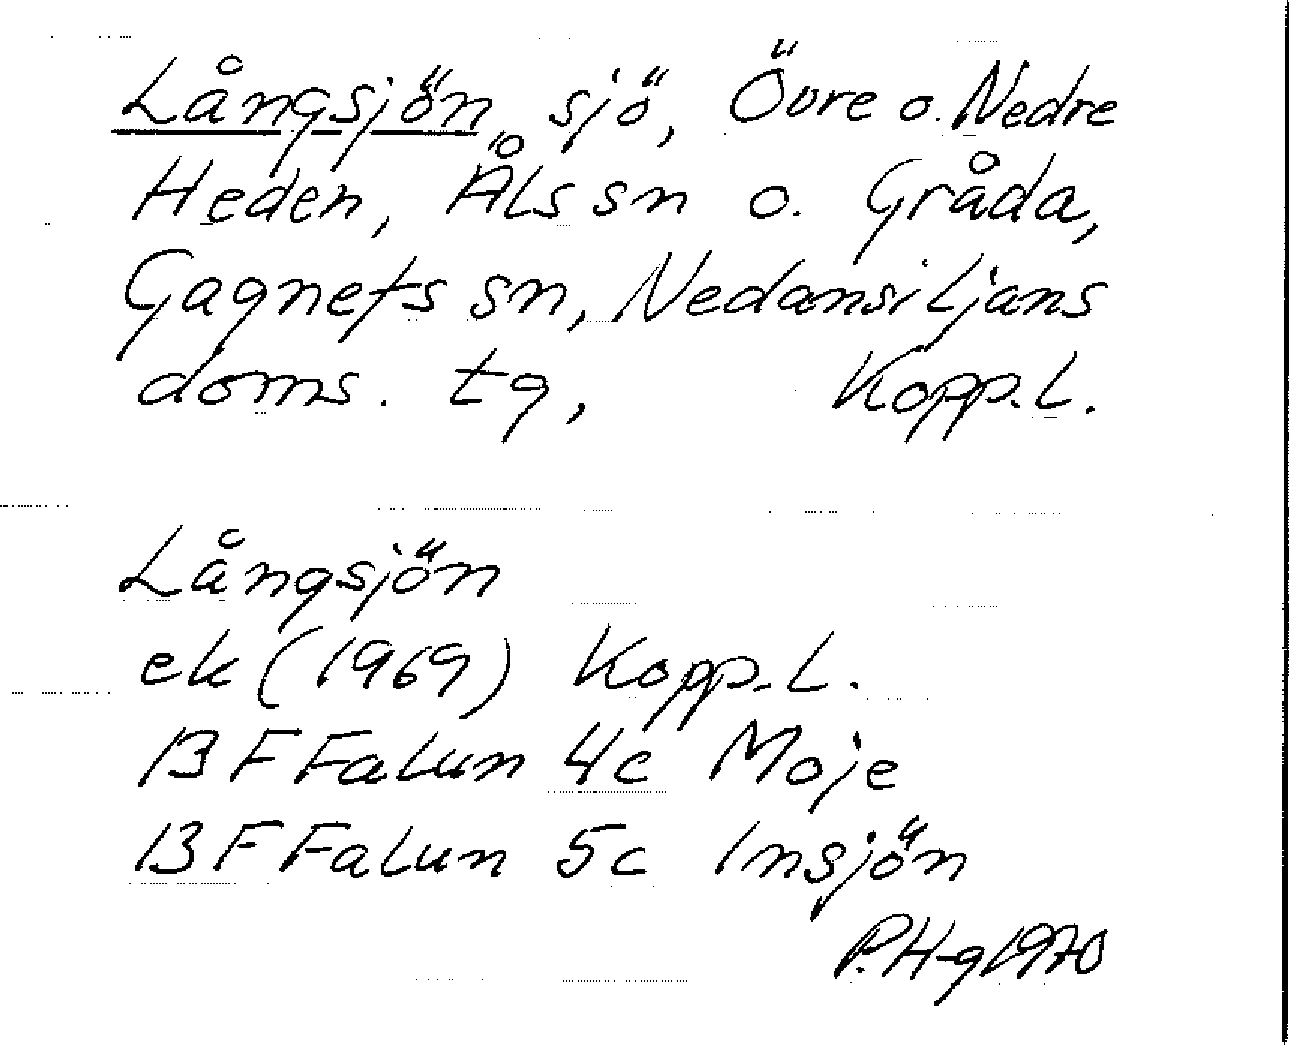 Långsjön, sjö, Övre o. Nedre
Heden, Åls sn o. Gråda,
Gagnefs sn, Nedansiljans
doms. tg, Kopp. l.
Långsjön
ek (1969) Kopp. l.
13 F Falun 4c Moje
13 F Falun 5c Insjön
P.H-g 1970